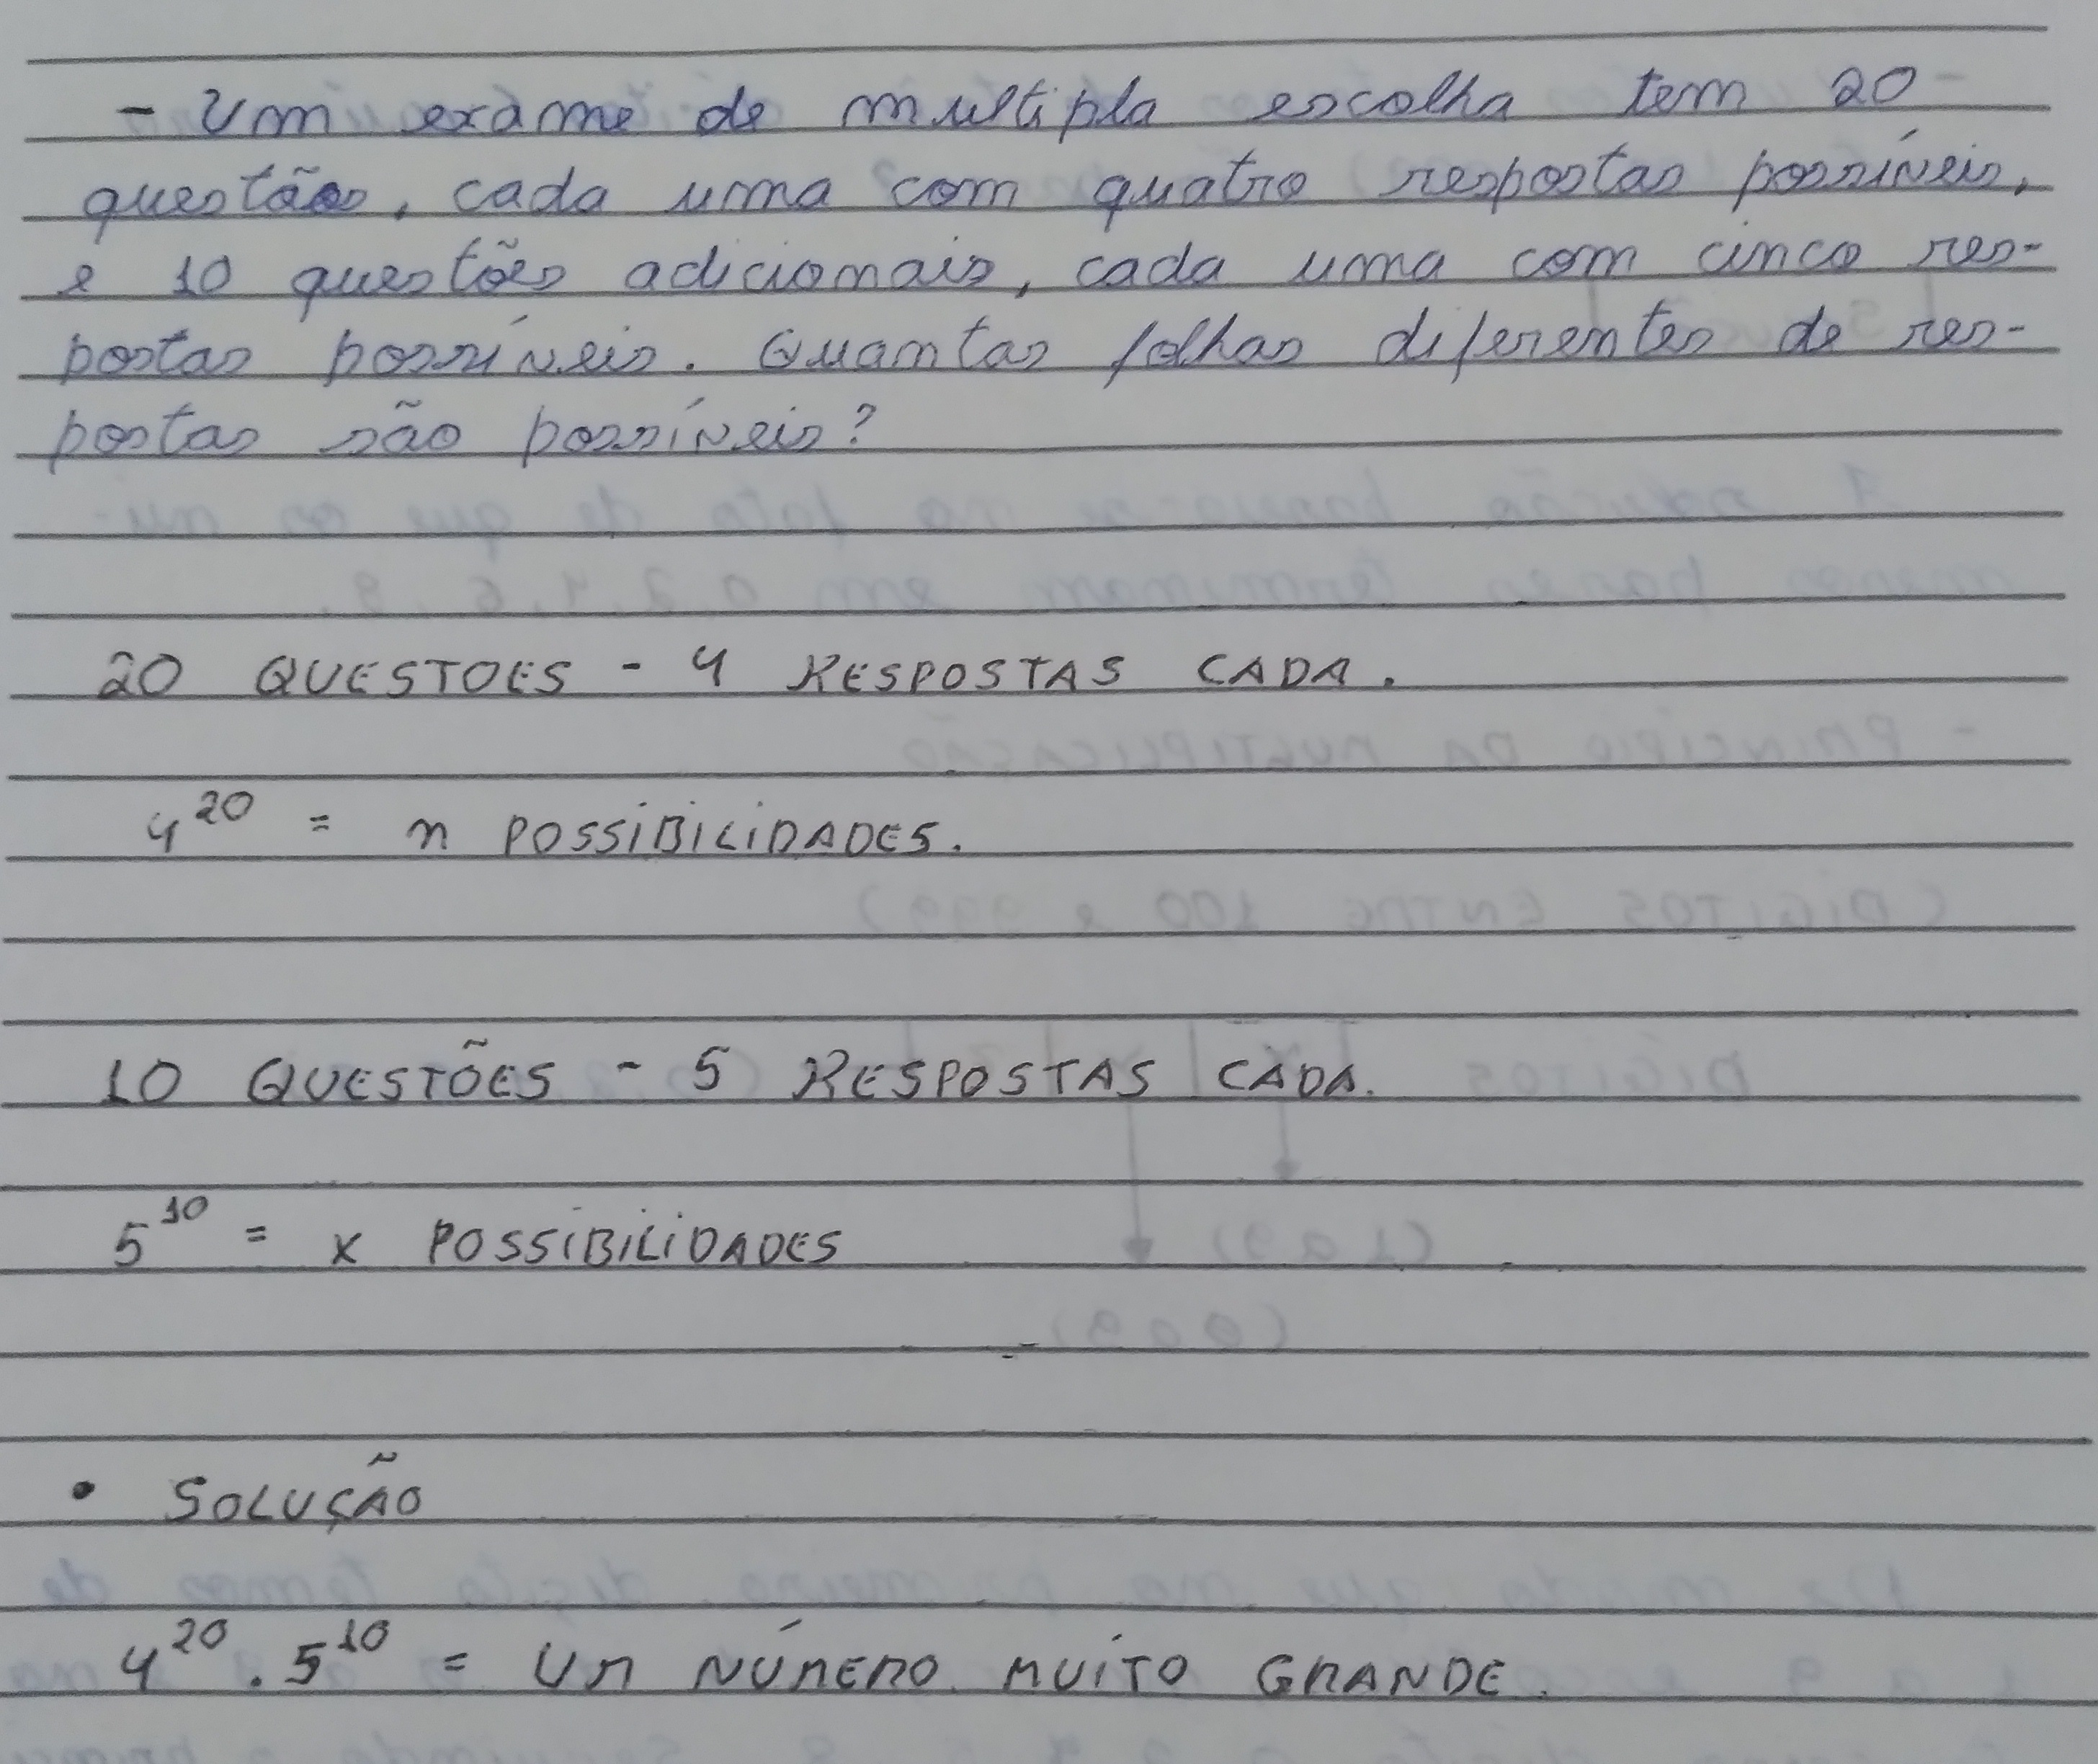 - Um exame de multipla escolha tem 20
questões, cada uma com quatro respostas possíveis,
e 10 questões adicionais, cada uma com cinco res-
postas possíveis. Quantas folhas diferentes de res-
postas são possíveis?
20 QUESTOES - 4 RESPOSTAS CADA.
4²⁰ = n POSSIBILIDADES.
10 QUESTÕES - 5 RESPOSTAS CADA.
5¹⁰ = x POSSIBILIDADES
• SOLUÇÃO
4²⁰ . 5¹⁰ = UM NÚMERO MUITO GRANDE.